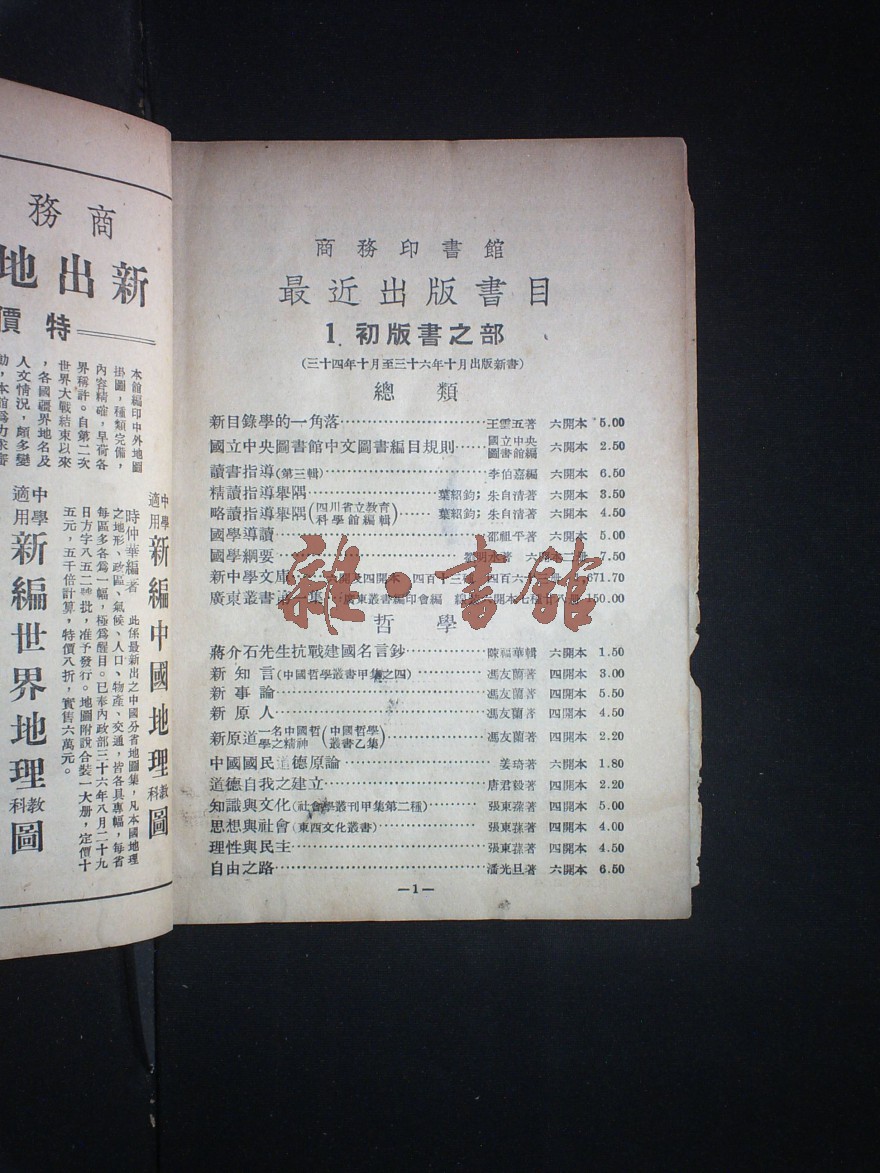 商務印書館
最近出版書目
1. 初版書之部
(三十四年十月至三十六年十月出版新書)
總類
新目錄學的一角落……王雲五著 六開本 5.00
國立中央圖書館中文圖書編目規則……國立中央圖書館編 六開本 2.50
讀書指導(第三輯)……李伯嘉編 六開本 6.50
精讀指導舉隅……葉紹鈞；朱自清著 六開本 3.50
略讀指導舉隅(四川省立教育科學館編輯)……葉紹鈞；朱自清著 六開本 4.50
國學導讀……邵祖平著 六開本 5.00
國學綱要……著 六開本二冊 7.50
新中學文庫……六開及四開本 四百十三種 四百六十 671.70
廣東叢書第一集……廣東叢書編印會編 六開本七種廿八冊 150.00
哲學
蔣介石先生抗戰建國名言鈔……陳福華輯 六開本 1.50
新知言(中國哲學叢書甲集之四)……馮友蘭著 四開本 3.00
新事論……馮友蘭著 四開本 5.50
新原人……馮友蘭著 四開本 4.50
新原道一名中國哲學之精神(中國哲學叢書乙集)……馮友蘭著 四開本 2.20
中國國民道德原論……姜琦著 六開本 1.80
道德自我之建立……唐君毅著 四開本 2.20
知識與文化(社會學叢刊甲集第二種)……張東蓀著 四開本 5.00
思想與社會(東西文化叢書)……張東蓀著 四開本 4.00
理性與民主……張東蓀著 四開本 4.50
自由之路……潘光旦著 六開本 6.50
—1—
商務
新出地
特價
本館編印中外地圖
掛圖，種類完備，
內容精確，早荷各
界稱許。自第二次
世界大戰結束以來
，各國疆界地名及
人文情況，頗多變
動，本館爲力求審
中學適用 新編中國地理教科圖
時仲華編著 此係最新出之中國分省地圖集，凡本國地理
之地形、政區、氣候、人口、物產、交通，皆各具專幅，每省
每區多各爲一幅，極爲醒目。已奉內政部三十六年八月二十九
日方字八五二號批，准予發行。地圖附說合裝一大册，定價十
五元，五千倍計算，特價八折，實售六萬元。
中學適用 新編世界地理教科圖
雜·書館